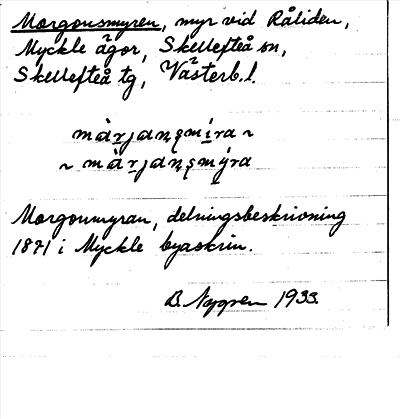 Morgonsmyren, myr vid Råliden,
Myckle ägor, Skellefteå sn,
Skellefteå tg, Västerb. l.
Morgonmyran, delningsbeskrivning
1871 i Myckle byaskrin.
B. Nygren 1933.